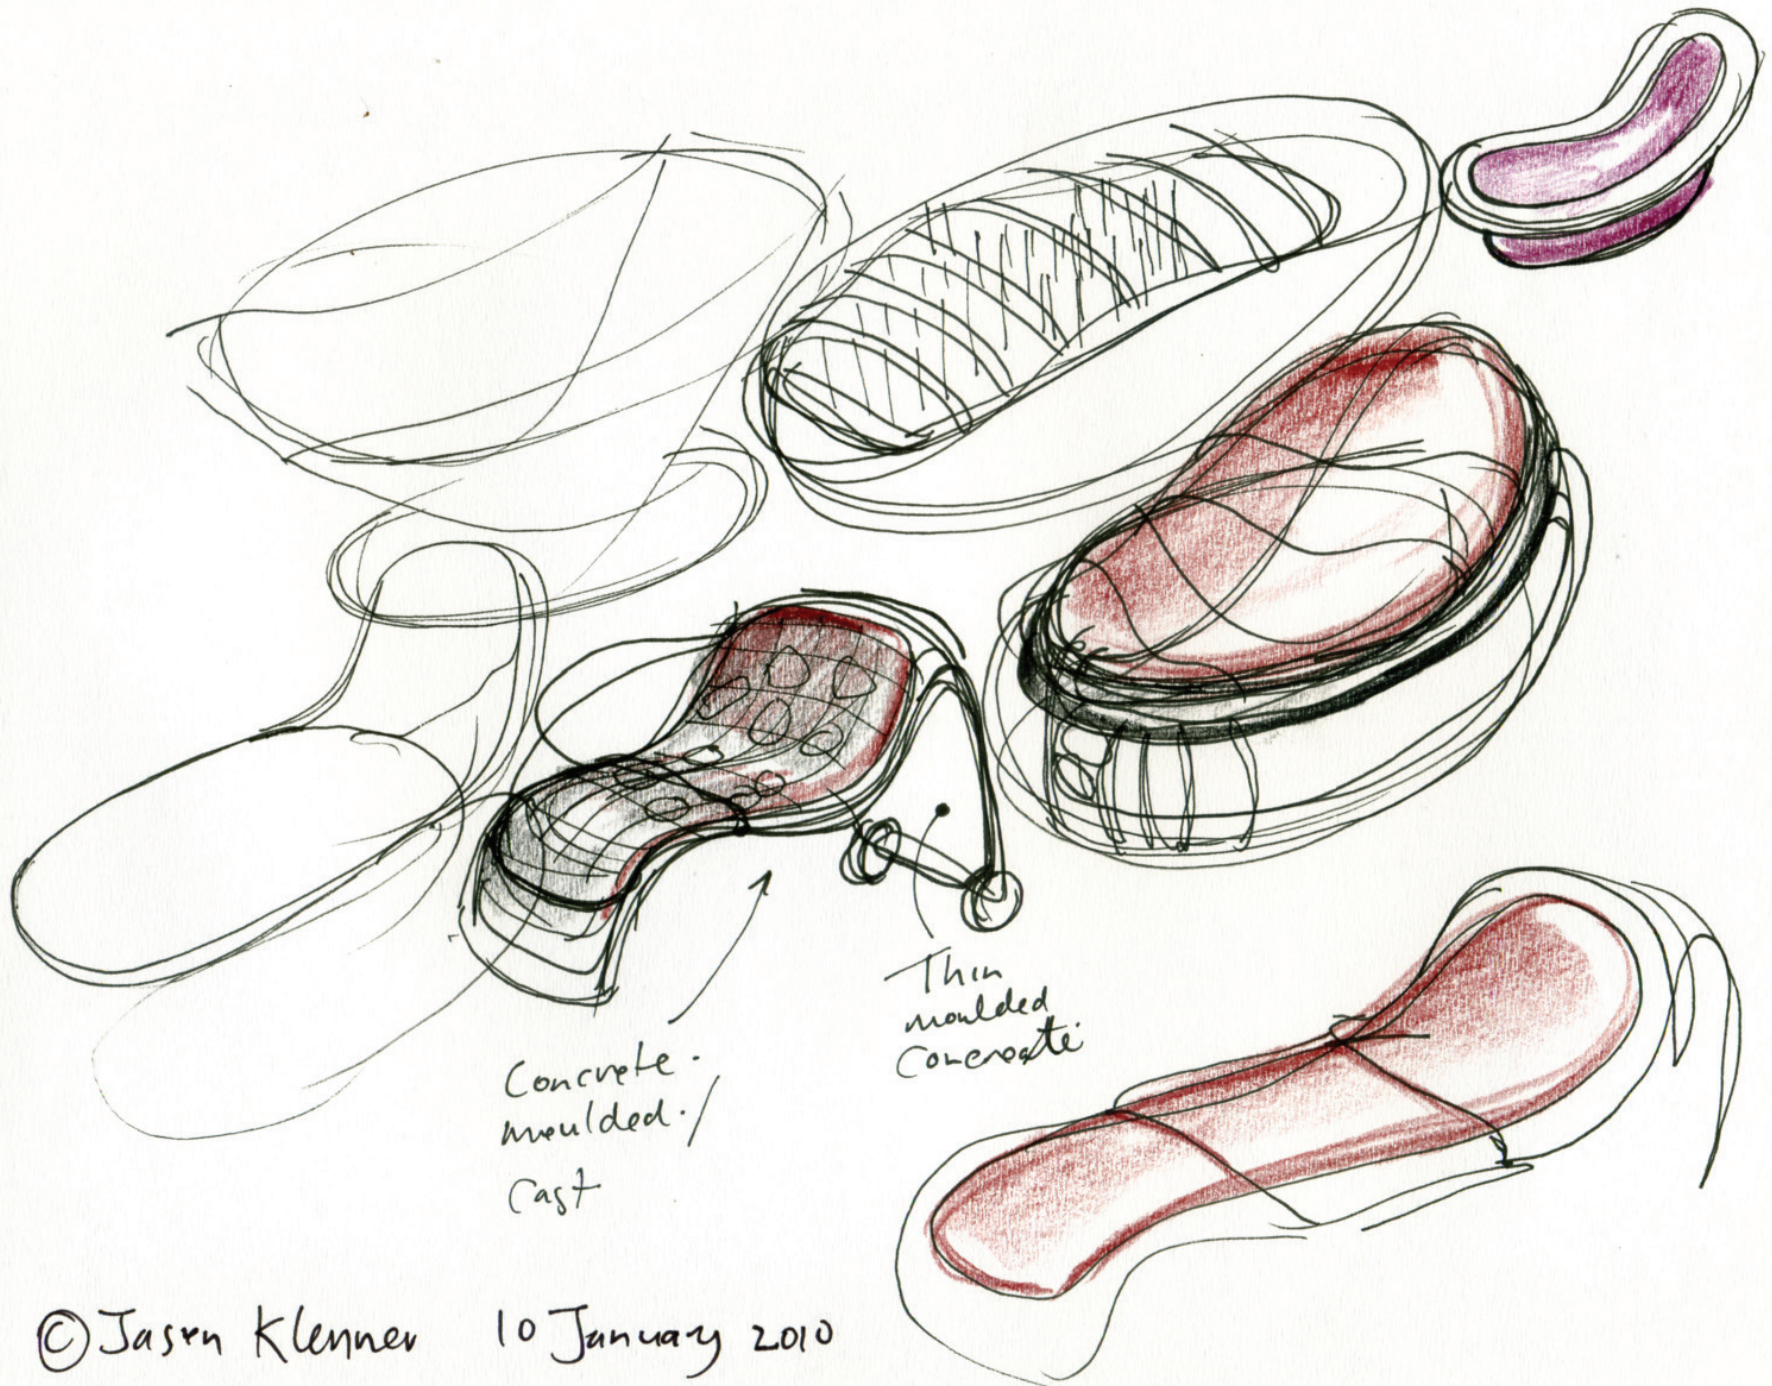 Thin
moulded
Concreate
Concrete.
moulded./
Cast
© Jasen Klenner 10 January 2010